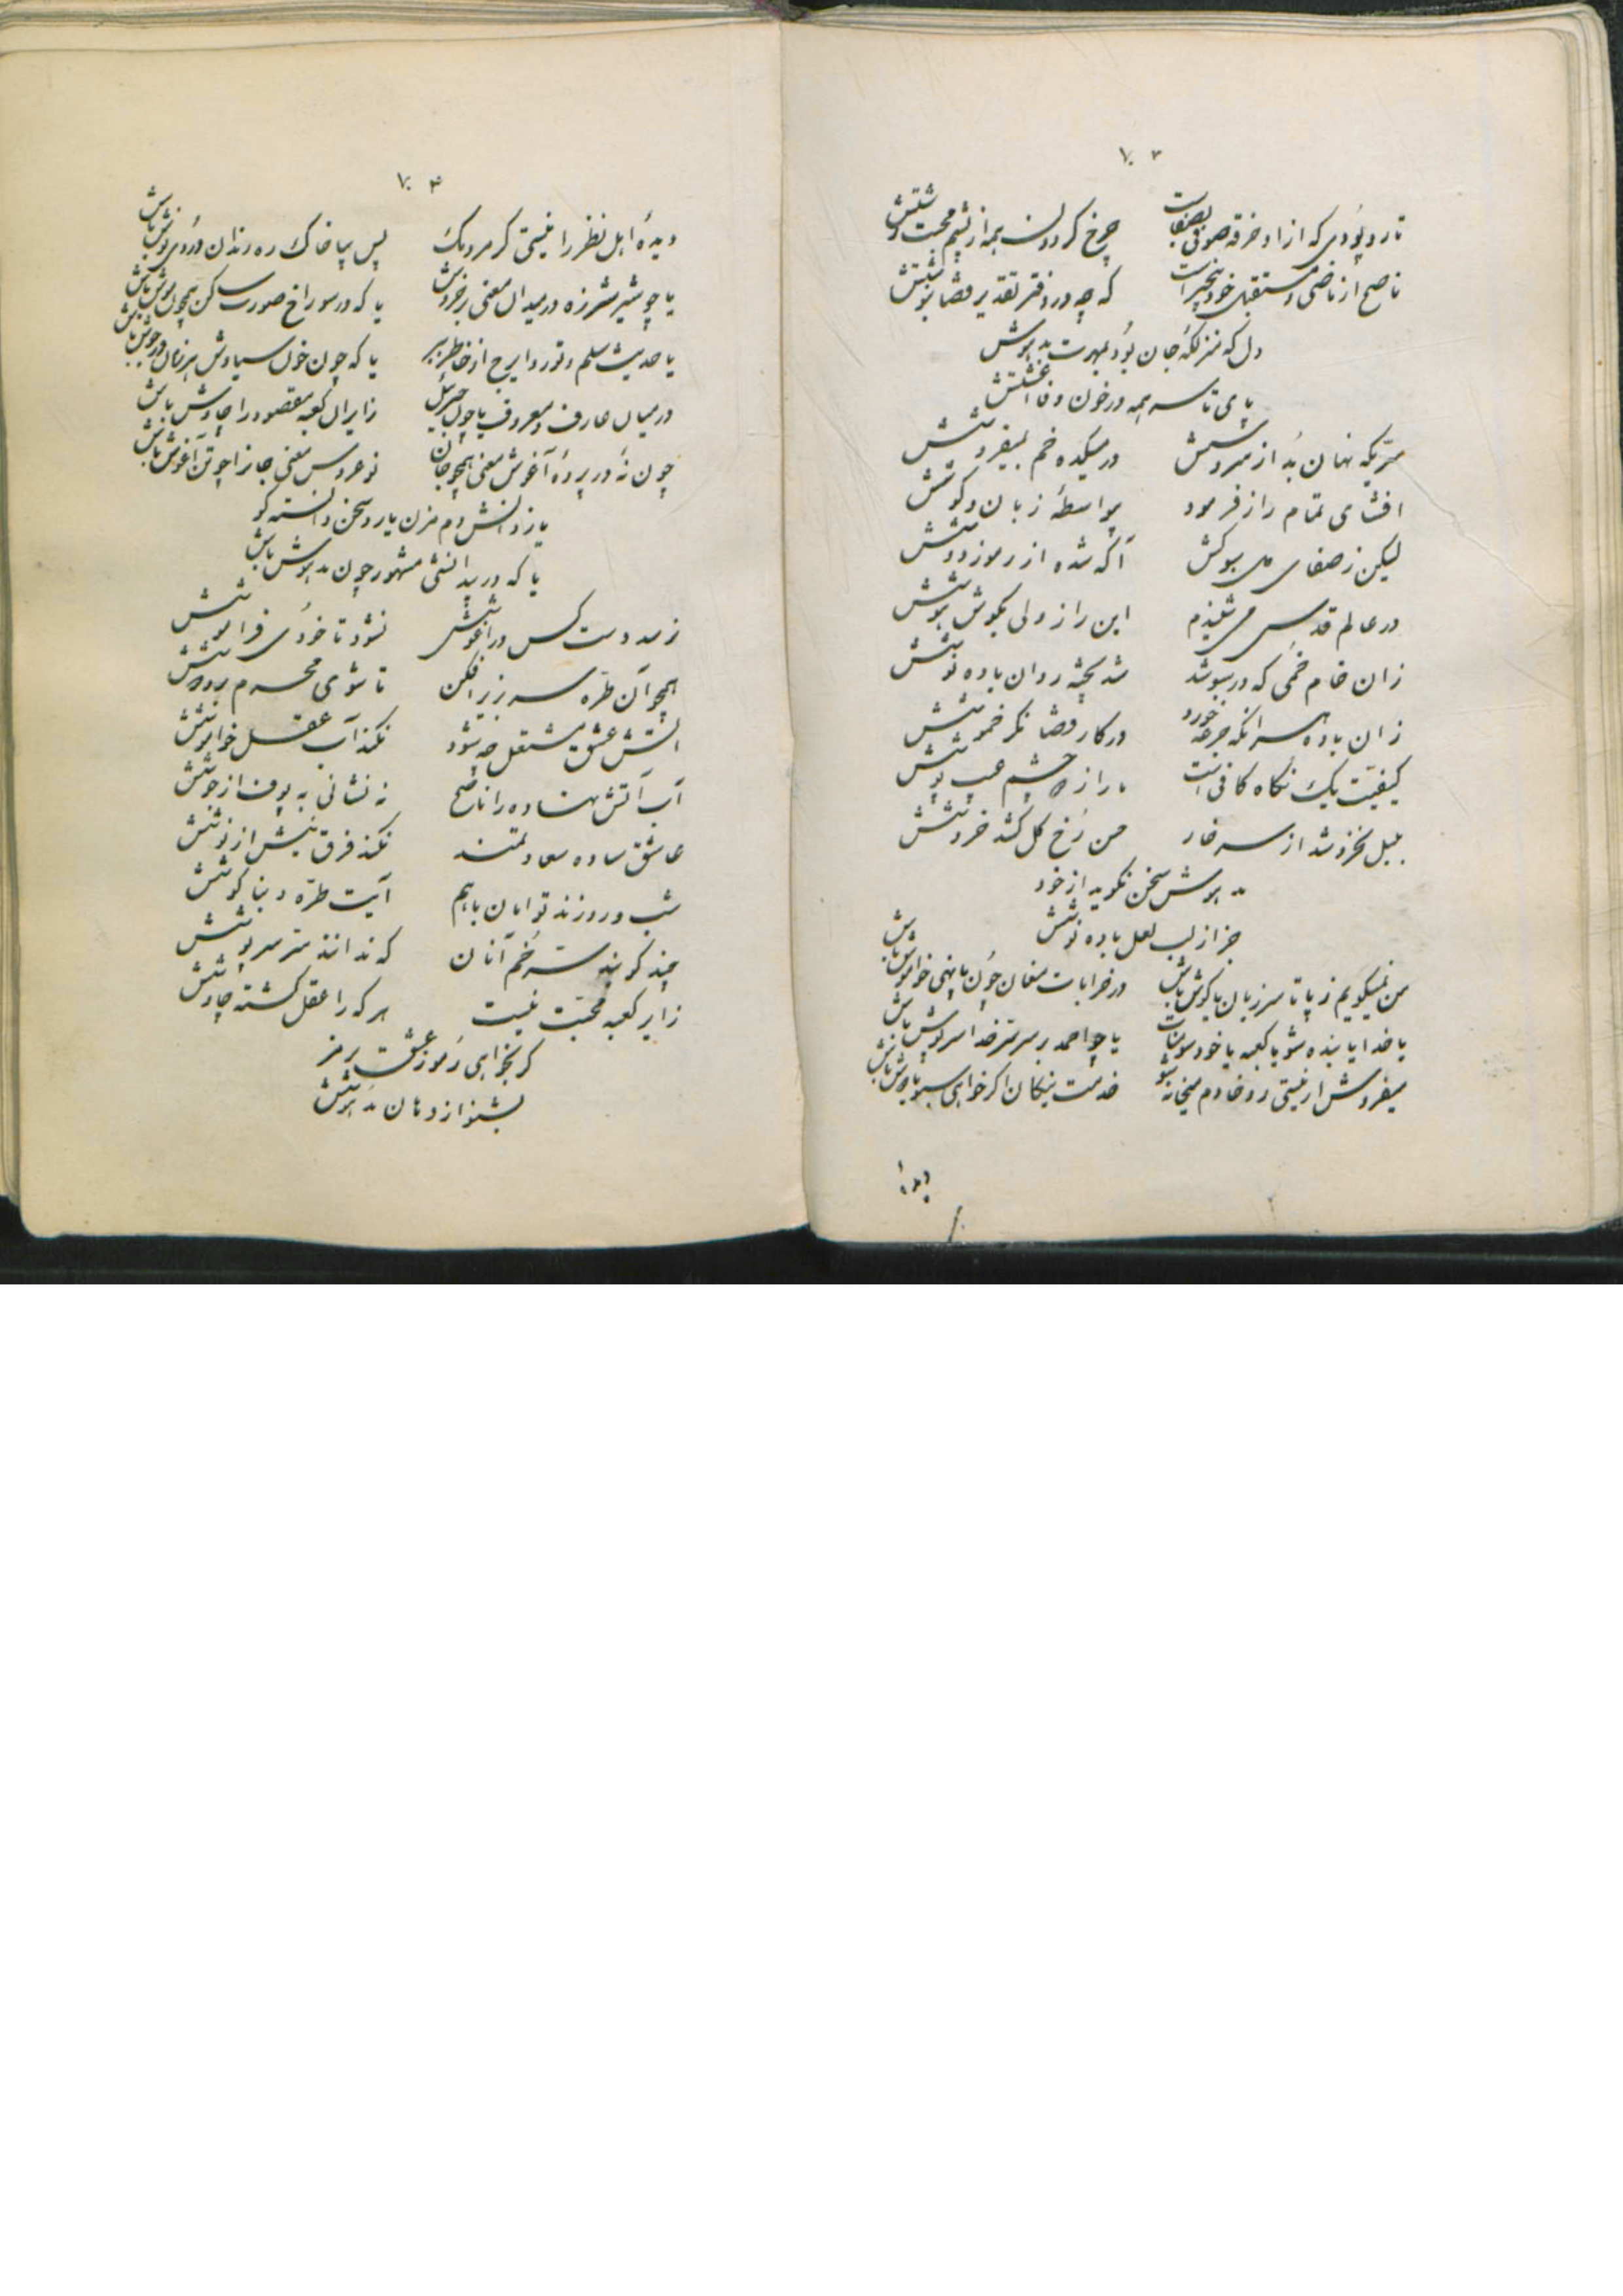 ۷۰۳
تار و پودی که از او خرقه صوفی بصفاست
چرخ گردون همه از پشم محبت رشتش
ناصح از ماضی و مستقبل خود بیخبر است
که چه در دفتر تقدیر قضا بنوشتش
دل که منزلگه جان بود بمهرت مدهوش
پای تا سر همه در خون وفا آغشتش
سریکه نهان بد از سروشش
در میکده خم بمیفروشش
افشای تمام راز فرمود
بیواسطهٔ زبان و گوشش
لیکن ز صفای می سبوکش
آگه شده از رموز دوشش
در عالم قدس می شنیدم
این راز ولی بگوش هوشش
زان خام خمی که در سبو شد
شد پخته روان باده نوشش
زان باده هر آنکه جرعه خورد
در کار قضا نگر خموشش
کیفیت یک نگاه کافی است
ما را ز دو چشم عیب پوشش
بلبل نخروشد از سر خار
حسن رخ گل کشد خروشش
مدهوش سخن نگوید از خود
جز از لب لعل باده نوشش
من نمیگویم ز پا تا سر زبان یا گوش باش
در خرابات مغان چون پا نهی خاموش باش
یا خدا یا بنده شو یا کعبه یا خود سومنات
یا چو احمد بر سر سر خدا سرپوش باش
میفروش ار نیستی رو خادم میخانه شو
خدمت نیکان اگر خواهی سبو بر دوش باش
دیده
۷۰۴
دیدهٔ اهل نظر را نیستی گر مردمک
پس بیا خاک ره رندان دردی نوش باش
یا چو شیر شرزه در میدان معنی برخروش
یا که در سوراخ صورت ساکن همچون موش باش
یا حدیث سلم و تور و ایرج از خاطر ببر
یا که چون خون سیاوش هر زمان در جوش باش
در میان عارف و معروف یا چون جبرئیل
زایران کعبه مقصود را چاوش باش
چون نهٔ در پردهٔ آغوش معنی همچو جان
نوعروس معنی جان را چو تن آغوش باش
یا ز دانش دم مزن یا رو سخن دانسته گو
یا که در بیدانشی مشهور چون مدهوش باش
نرسد دست کس در آغوشش
نشود تا خودی فراموشش
همچو آن طره سر بزیر افکن
تا شوی محرم بر و دوشش
آتش عشق مشتعل چو شود
نکند آب عقل خاموشش
آب آتش نهاده را ناصح
نه نشانی به پف از جوشش
عاشق ساده سعادتمند
نکند فرق نیش از نوشش
شب و روزند توامان باهم
آیت طره و بناگوشش
چند گویند سر خم آنان
که ندانند سر سرپوشش
زایر کعبه محبت نیست
هر که را عقل گشته چاوشش
گر بخواهی رموز عشق ز رمز
بشنو از دهان مدهوشش